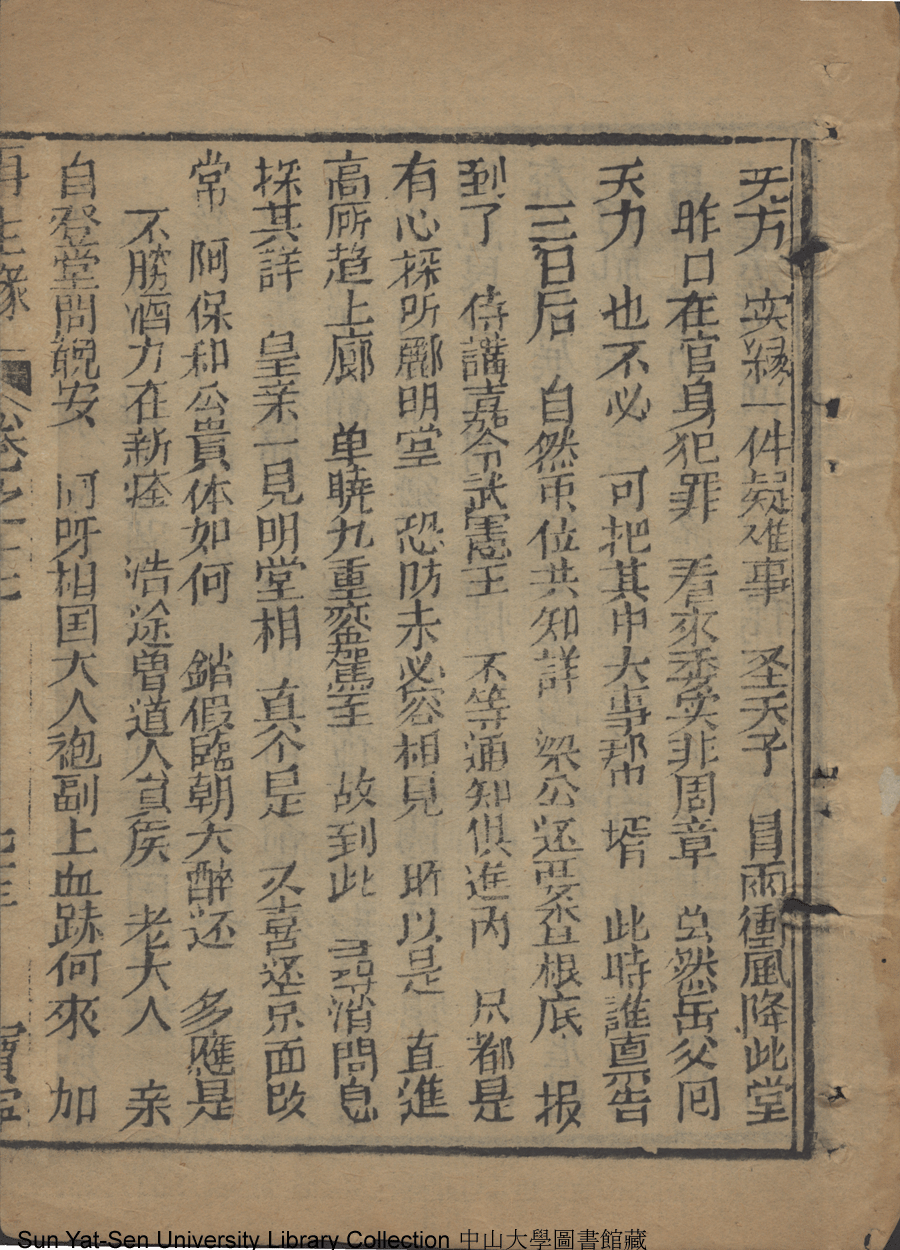 天方 实縁一件疑难事 圣天子 冒雨衝風降此堂
昨口在官身犯罪 看來委实非周章 虽然岳父同
天力 也不必 可把其中大事帮 壻 此時誰直告
三日后 自然正位共知詳 梁公还要查根底 报
到了 侍講嘉令武憲王 不等通知俱進内 只都是
有心探所酈明堂 恐防未必容相見 所以是 直進
高厠趋上廊 单曉九重銮駕至 故到此 寻消問息
採其詳 皇亲一見明堂相 真个是 又喜还京面改
常 阿保和公貴体如何 銷假臨朝大醉还 多應是
不勝酒力在新痊 浩途曽道人負疾 老大人 亲
自登堂問覩安 呵呀相国大人袍副上血跡何來 加
再生縁 卷之十七